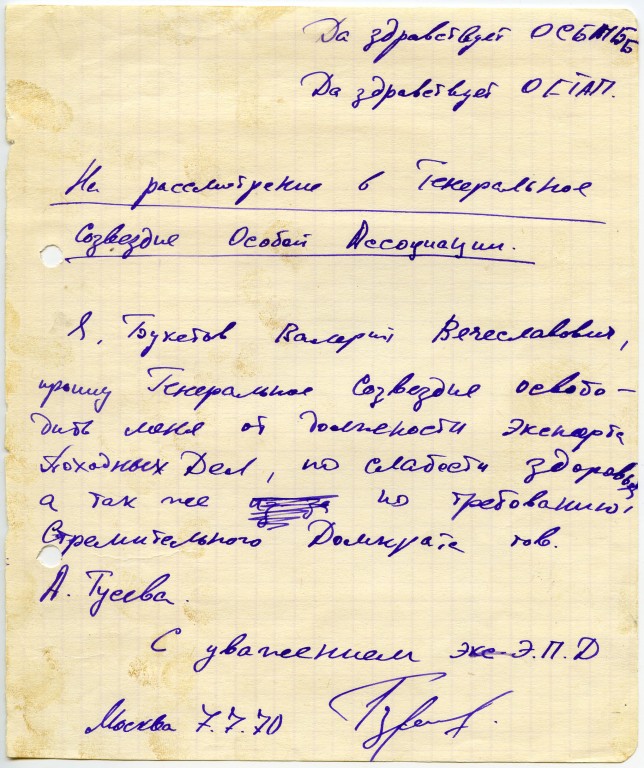 Да здравствует ОСБМББ
Да здравствует ОСТАП.
На рассмотрение в Генеральное
Созвездие Особой Ассоциации.
Я, Букетов Валерий Вячеславович,
прошу Генеральное Созвездие освобо-
дить меня от должности Эксперта
Походных Дел, по слабости здоровья,
а так же по требованию
Стремительного Домкрата тов.
А. Гусева.
С уважением экс-Э.П.Д
Москва 7.7.70